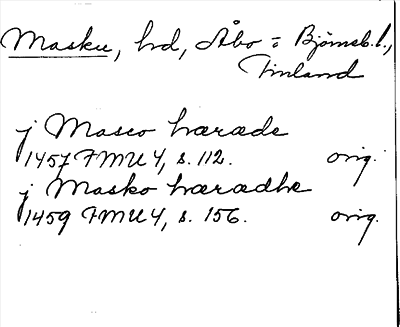 Masku, hd, Åbo = Björneb. l.,
Finland
j Masco hæræde
1457 FMU 4, s. 112. orig.
j Masko hærædhe
1459 FMU 4, s. 156. orig.